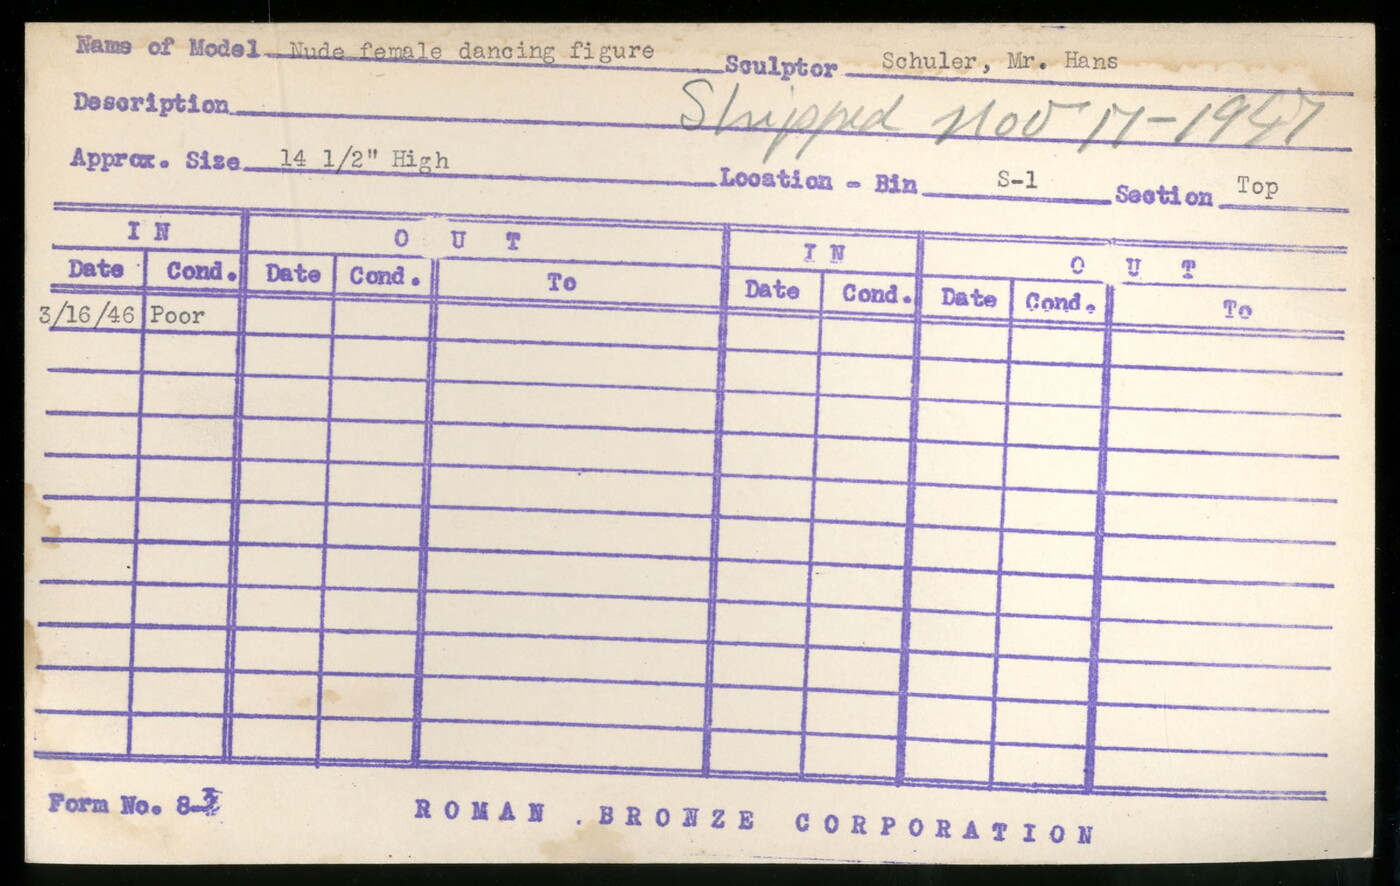 Name of Model Nude female dancing figure Sculptor Schuler, Mr. Hans
Description Shipped Nov 17-1947
Approx. Size 14 1/2" High Location - Bin S-1 Section Top
IN OUT IN OUT
Date Cond. Date Cond. To Date Cond. Date Cond. To
3/16/46 Poor
Form No. 8- ROMAN BRONZE CORPORATION